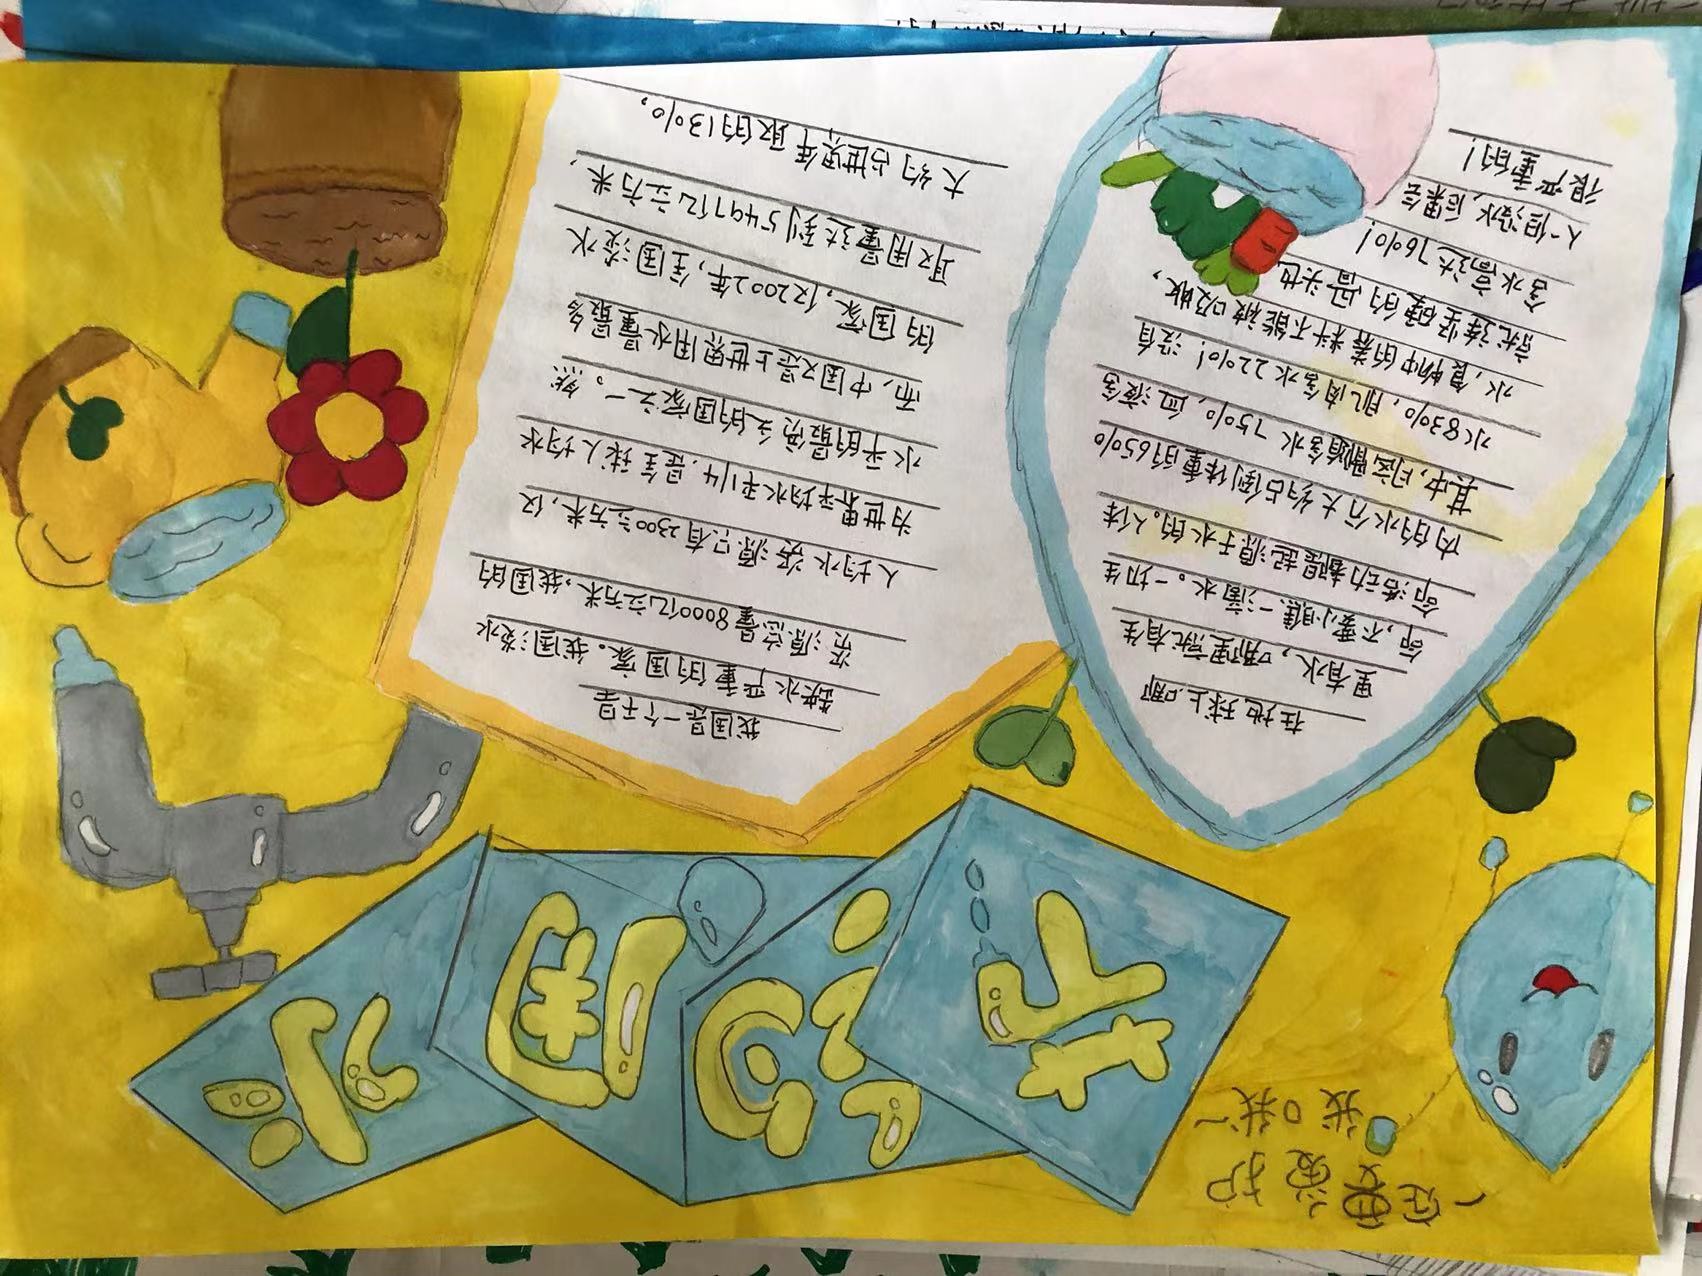 一定要爱护
我
节约用水
在地球上,哪
里有水,哪里就有生
命,不要小瞧一滴水。一切生
命活动都是起源于水的。人体
内的水分大约占倒体重的65%
其中,脑髓含水75%,血液含
水83%,肌肉含水22%!没有
水,食物中的养料不能被吸收,
就连坚硬的骨头也
含水高达76%!
人一但没水,后果会
很严重的!
我国是一个干旱
缺水严重的国家。我国淡水
资源总量8000亿立方米,我国的
人均水资源只有2300立方米,仅
为世界平均水平1/4,是全球人均水
水平的最贫乏的国家之一。然
而,中国又是上世界用水量最多
的国家,仅2002年,全国淡水
取用量达到5497亿立方米,
大约占世界年取的13%。